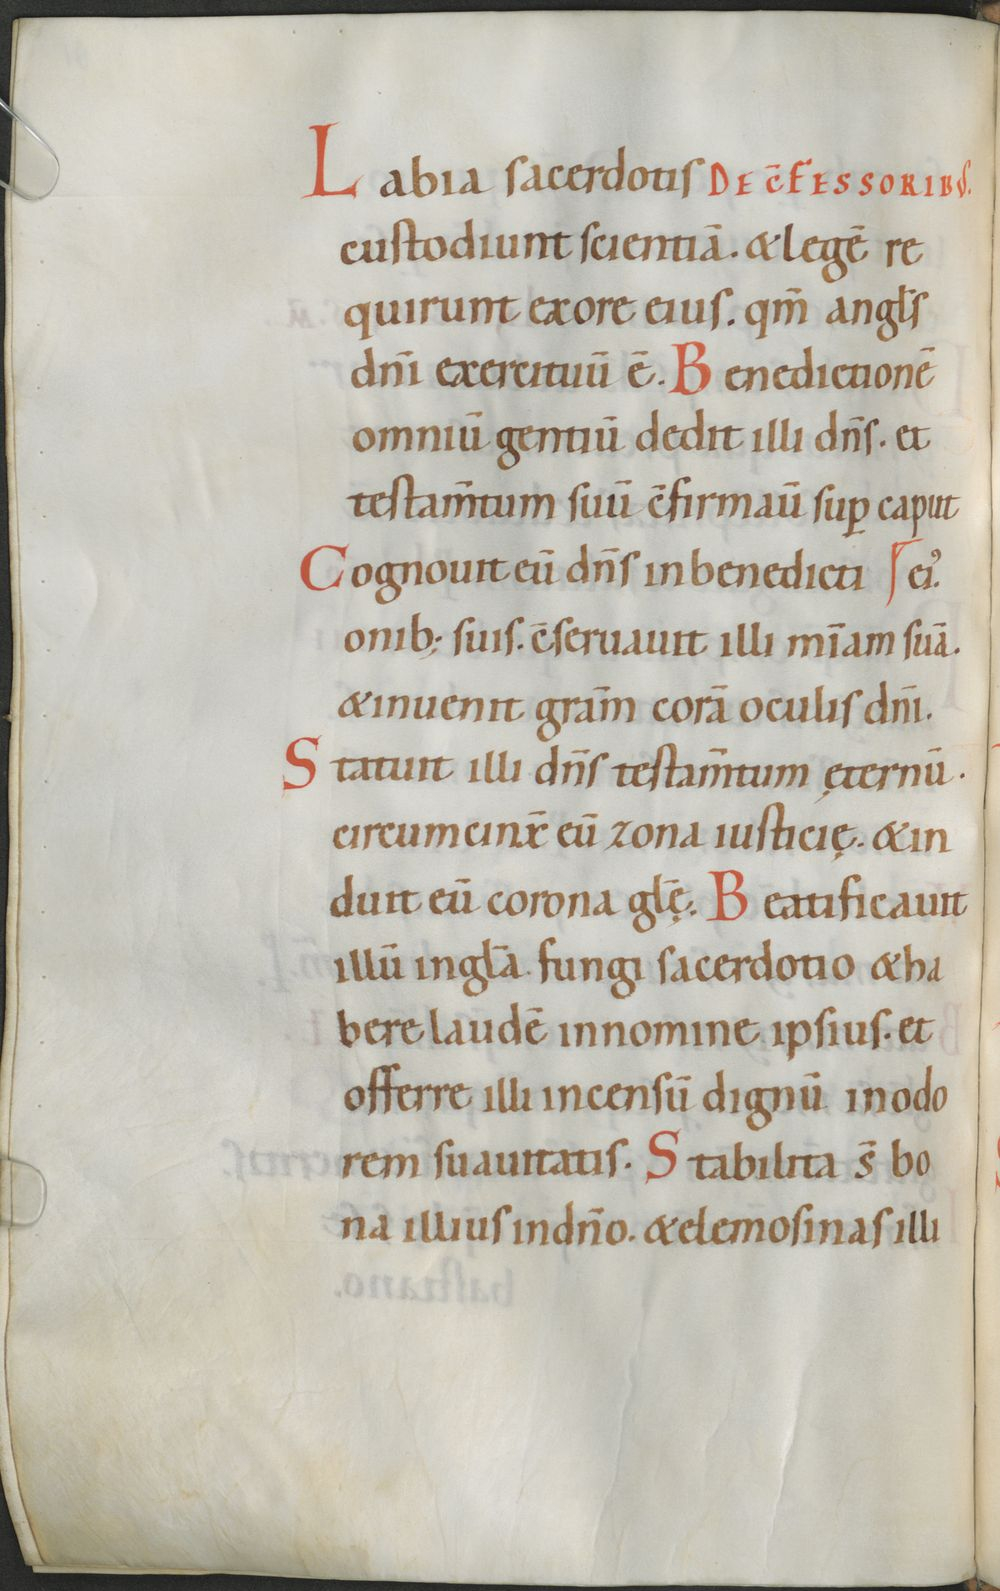 Labia sacerdotis DE CŌFESSORIBVS.
custodiunt scientiā. & legē re
quirunt ex ore eius. qm̄ angls̄
dn̄i exercituū ē. Benedictionē
omniū gentiū dedit illi dn̄s. et
testam̄tum suū c̄firmaū suꝑ caput
Cognouit eū dn̄s in benedicti ⌈ei᾽.
onib; suis. c̄seruauit illi mīam suā.
& inuenit grām corā oculis dn̄i.
Statuit illi dn̄s testam̄tum ęternū.
circumcinx̄ eū zona iusticię. & in
duit eū corona gl̄ę. Beatificauit
illū in gl̄a fungi sacerdotio & ha
bere laudē in nomine ipsius. et
offerre illi incensū dignū in odo
rem suauitatis. Stabilita s̄ bo
na illius in dn̄o. & elemosinas illi